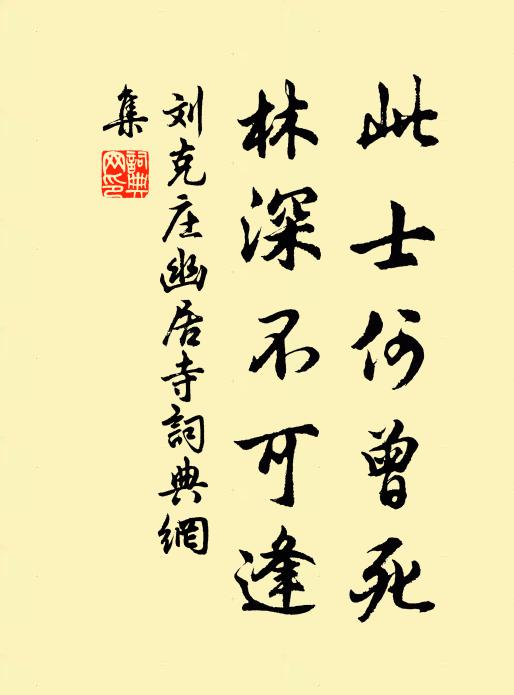 此士何曾死
林深不可逢
刘克庄幽居寺詞典網
集
詞典網印